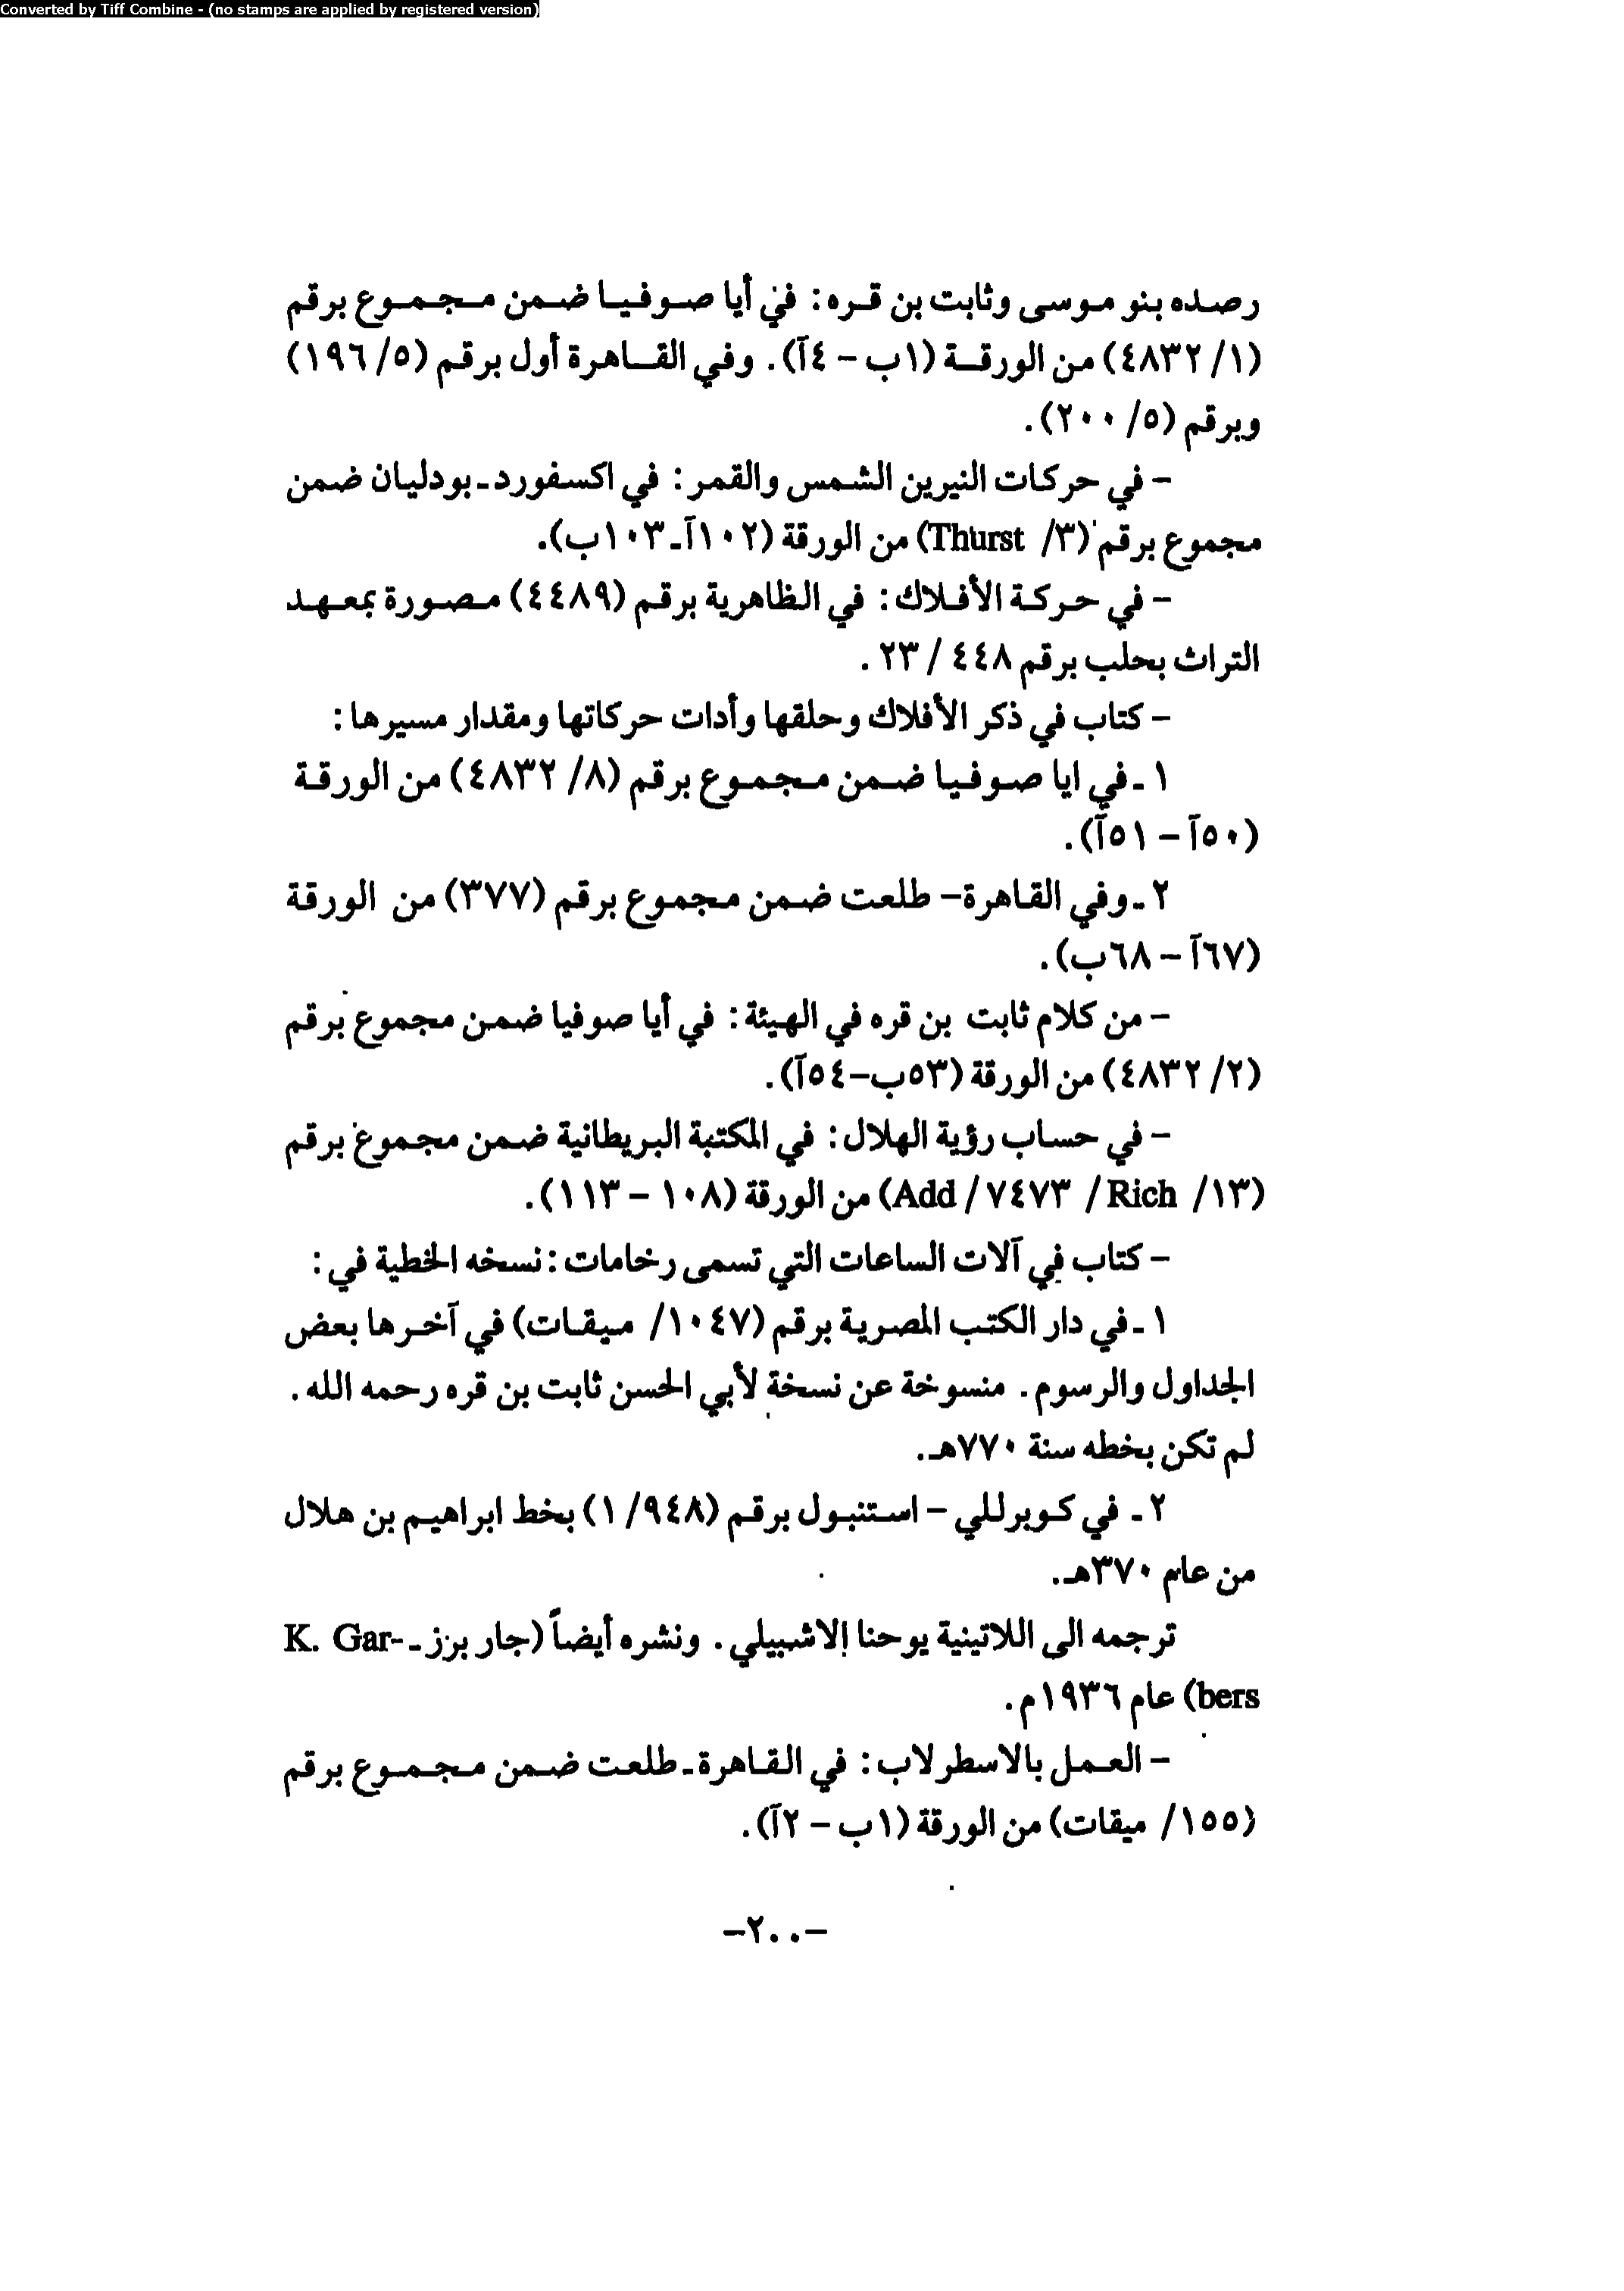 Converted by Tiff Combine - (no stamps are applied by registered version)
رصده بنو موسى وثابت بن قره: في أيا صوفيا ضمن مجموع برقم
(١/ ٤٨٣٢) من الورقة (١ب - ٤آ). وفي القاهرة أول برقم (٥/ ١٩٦)
وبرقم (٥/ ٢٠٠).
- في حركات النيرين الشمس والقمر: في اكسفورد - بودليان ضمن
مجموع برقم (٣/ Thurst) من الورقة (١٠٢آ - ١٠٣ب).
- في حركة الأفلاك: في الظاهرية برقم (٤٤٨٩) مصورة بمعهد
التراث بحلب برقم ٤٤٨ / ٢٣ .
- كتاب في ذكر الأفلاك وحلقها وأدات حركاتها ومقدار مسيرها:
١ - في ايا صوفيا ضمن مجموع برقم (٨/ ٤٨٣٢) من الورقة
(٥٠آ - ٥١آ).
٢ - وفي القاهرة - طلعت ضمن مجموع برقم (٣٧٧) من الورقة
(٦٧آ - ٦٨ب).
- من كلام ثابت بن قره في الهيئة: في أيا صوفيا ضمن مجموع برقم
(٢/ ٤٨٣٢) من الورقة (٥٣ب - ٥٤آ).
- في حساب رؤية الهلال: في المكتبة البريطانية ضمن مجموع برقم
(١٣/ Add / ٧٤٧٣ / Rich) من الورقة (١٠٨ - ١١٣).
- كتاب في آلات الساعات التي تسمى رخامات: نسخه الخطية في:
١ - في دار الكتب المصرية برقم (١٠٤٧/ ميقات) في آخرها بعض
الجداول والرسوم. منسوخة عن نسخة لأبي الحسن ثابت بن قره رحمه الله.
لم تكن بخطه سنة ٧٧٠هـ.
٢ - في كوبرللي - استنبول برقم (٩٤٨/ ١) بخط ابراهيم بن هلال
من عام ٣٧٠هـ.
ترجمه الى اللاتينية يوحنا الاشبيلي. ونشره أيضاً (جار برز - K. Gar-
bers) عام ١٩٣٦م.
- العمل بالاسطرلاب: في القاهرة - طلعت ضمن مجموع برقم
(١٥٥/ ميقات) من الورقة (١ب - ٢آ).
-٢٠٠-